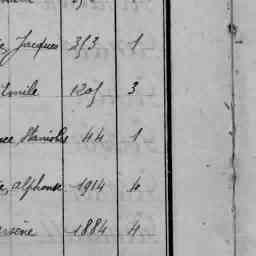 Jacques 253 1
Emile 1205 3
Stanislas 44 1
Alphonse 1914 4
Arsène 1884 4